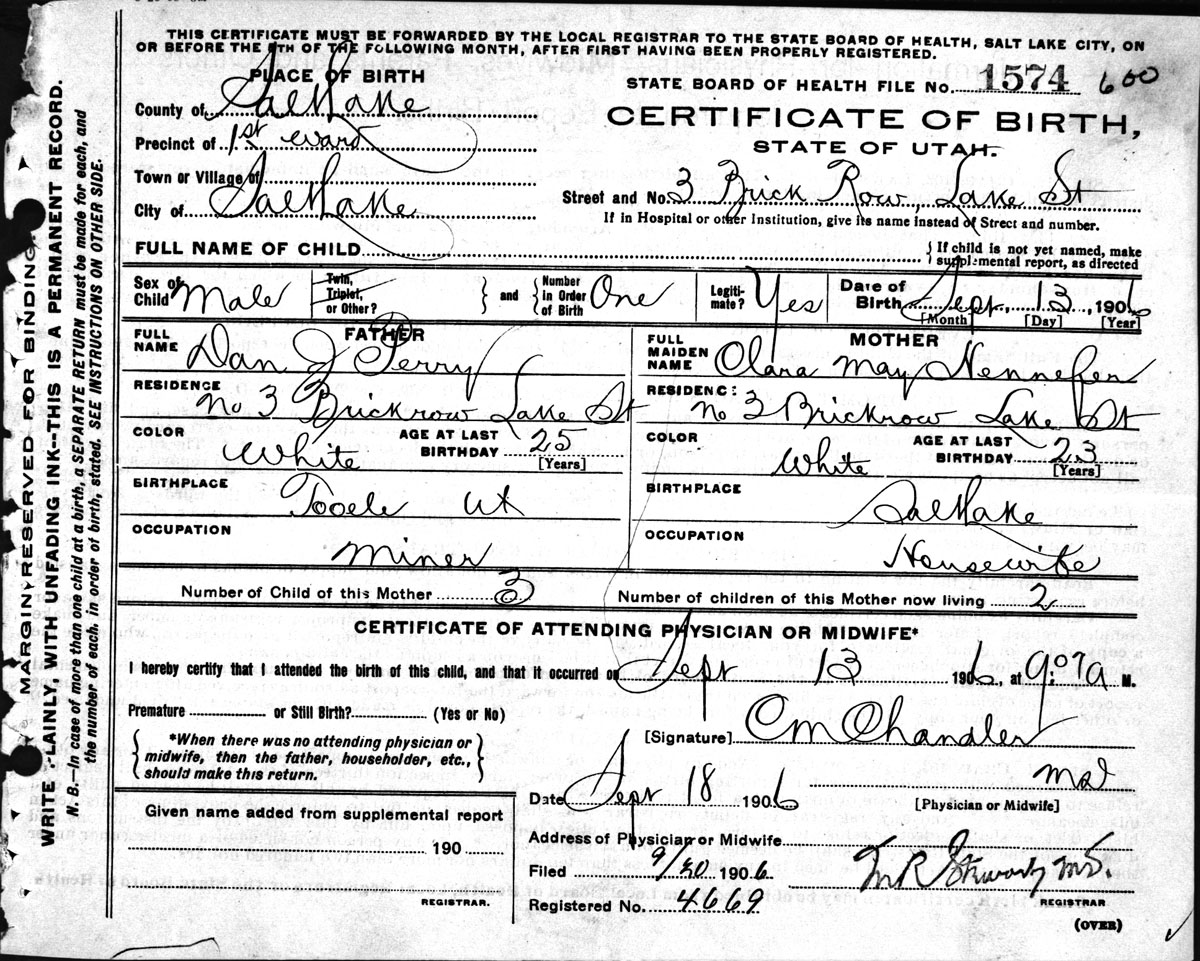 THIS CERTIFICATE MUST BE FORWARDED BY THE LOCAL REGISTRAR TO THE STATE BOARD OF HEALTH, SALT LAKE CITY, ON
OR BEFORE THE 5TH OF THE FOLLOWING MONTH, AFTER FIRST HAVING BEEN PROPERLY REGISTERED.
PLACE OF BIRTH
STATE BOARD OF HEALTH FILE No. 1574 600
County of Salt Lake
CERTIFICATE OF BIRTH,
Precinct of 1st Ward
STATE OF UTAH.
Town or Village of
Street and No. 3 Brick Row, Lake St
City of Salt Lake
If in Hospital or other Institution, give its name instead of Street and number.
FULL NAME OF CHILD
{ If child is not yet named, make
supplemental report, as directed
Sex of Child Male
Twin, Triplet, or Other? } and { Number in Order of Birth One
Legiti- mate? Yes
Date of Birth Sept, 13, 1906
[Month] [Day] [Year]
FATHER
FULL NAME Dan J Perry
RESIDENCE
No 3 Brickrow Lake St
COLOR White
AGE AT LAST BIRTHDAY 25
[Years]
BIRTHPLACE
Tooele Ut
OCCUPATION
Miner
MOTHER
FULL MAIDEN NAME Clara May Hennefer
RESIDENC:
No 3 Brickrow Lake St
COLOR White
AGE AT LAST BIRTHDAY 23
[Years]
BIRTHPLACE
Salt Lake
OCCUPATION
Housewife
Number of Child of this Mother 3
Number of children of this Mother now living 2
CERTIFICATE OF ATTENDING PHYSICIAN OR MIDWIFE*
I hereby certify that I attended the birth of this child, and that it occurred on Sept 13 1906, at 9:07 a M.
Premature or Still Birth? (Yes or No)
{ *When there was no attending physician or
midwife, then the father, householder, etc.,
should make this return. }
[Signature] C M Chandler
Date Sept 18 1906
[Physician or Midwife]
Given name added from supplemental report
190
REGISTRAR.
Address of Physician or Midwife
Filed 9/20 1906
Registered No. 4669
REGISTRAR
(OVER)
MARGIN RESERVED FOR BINDING
WRITE PLAINLY, WITH UNFADING INK--THIS IS A PERMANENT RECORD.
N. B.—In case of more than one child at a birth, a SEPARATE RETURN must be made for each, and
the number of each, in order of birth, stated. SEE INSTRUCTIONS ON OTHER SIDE.